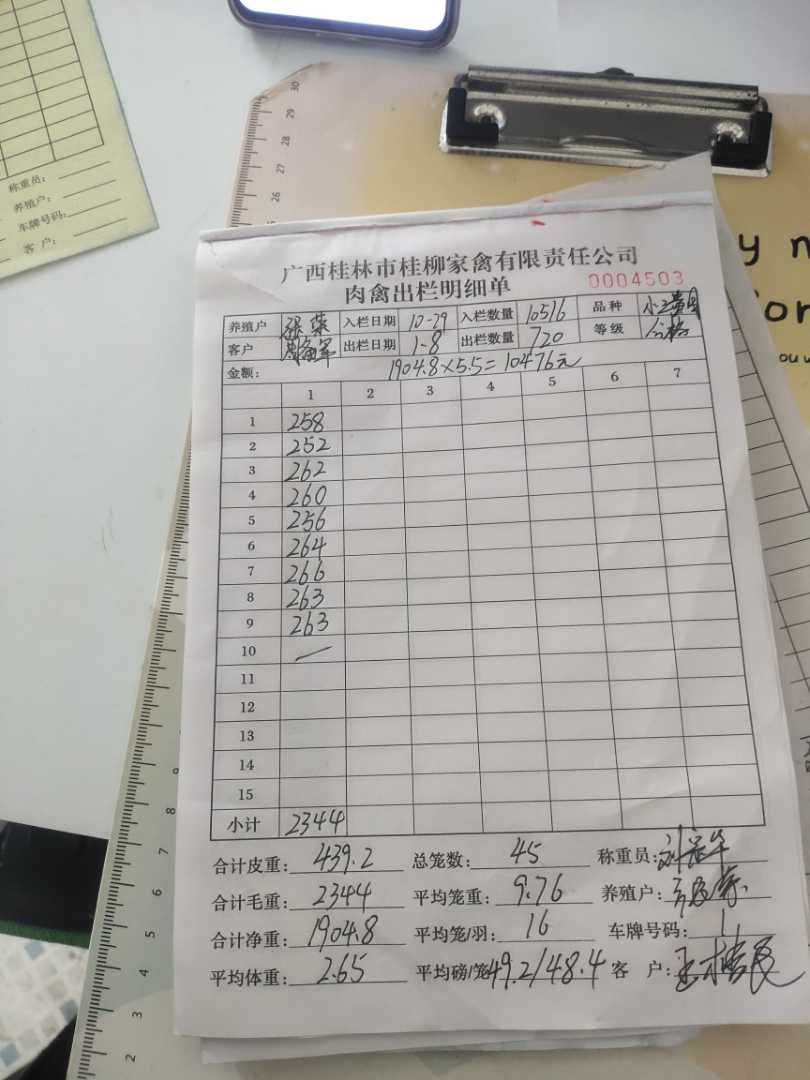 称重员:
养殖户:
车牌号码:
客户:
30
29
28
27
26
广西桂林市桂柳家禽有限责任公司
肉禽出栏明细单 0004503
养殖户 张荣 入栏日期 10-29 入栏数量 10516 品种
客户 出栏日期 1-8 出栏数量 720 等级 合格
金额: 1904.8×5.5=10476元
1 2 3 4 5 6 7
1 258
2 252
3 262
4 260
5 256
6 264
7 266
8 263
9 263
10
11
12
13
14
15
小计 2344
合计皮重: 439.2 总笼数: 45 称重员:
合计毛重: 2344 平均笼重: 9.76 养殖户:
合计净重: 1904.8 平均笼/羽: 16 车牌号码: 1
平均体重: 2.65 平均磅/笼 49.2/48.4 客户:
9
8
7
6
5
4
3
2